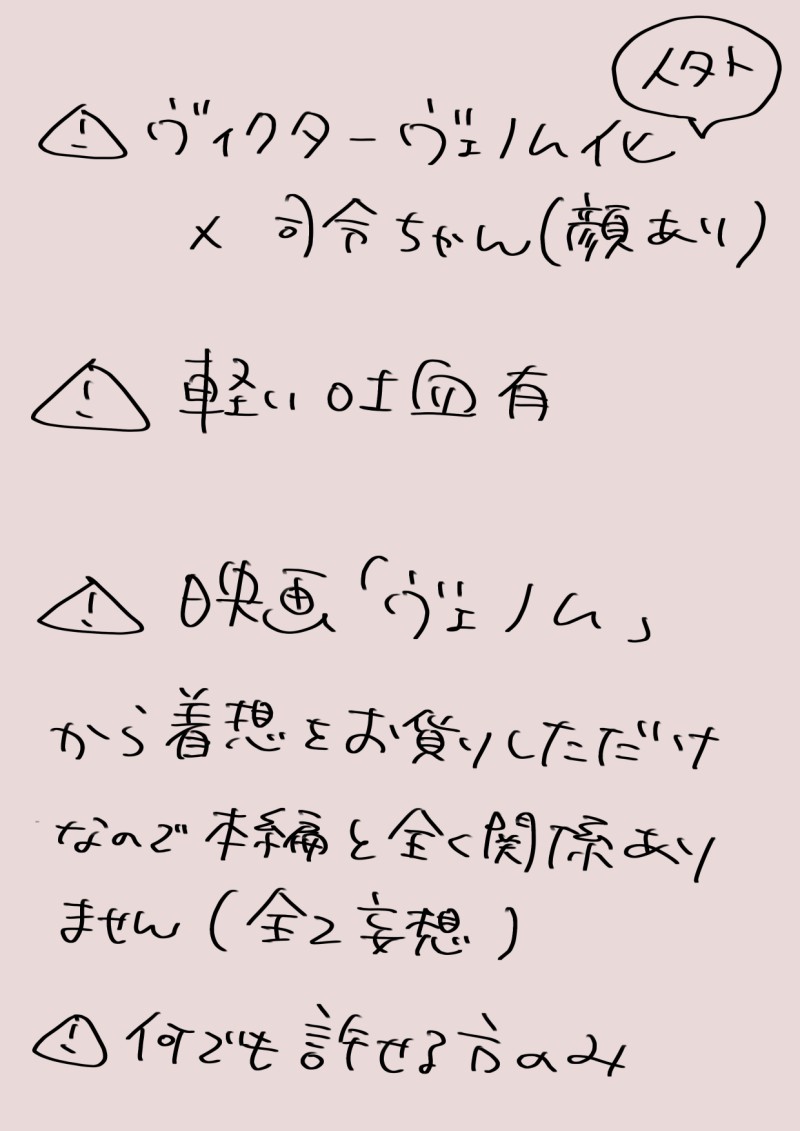 イタト
⚠ ヴィクターヴェノム化
× 司令ちゃん(顔あり)
⚠ 軽い吐血有
⚠ 映画「ヴェノム」
から着想をお貸りしただけ
なので本編と全く関係あり
ません(全て妄想)
⚠ 何でも許せる方のみ